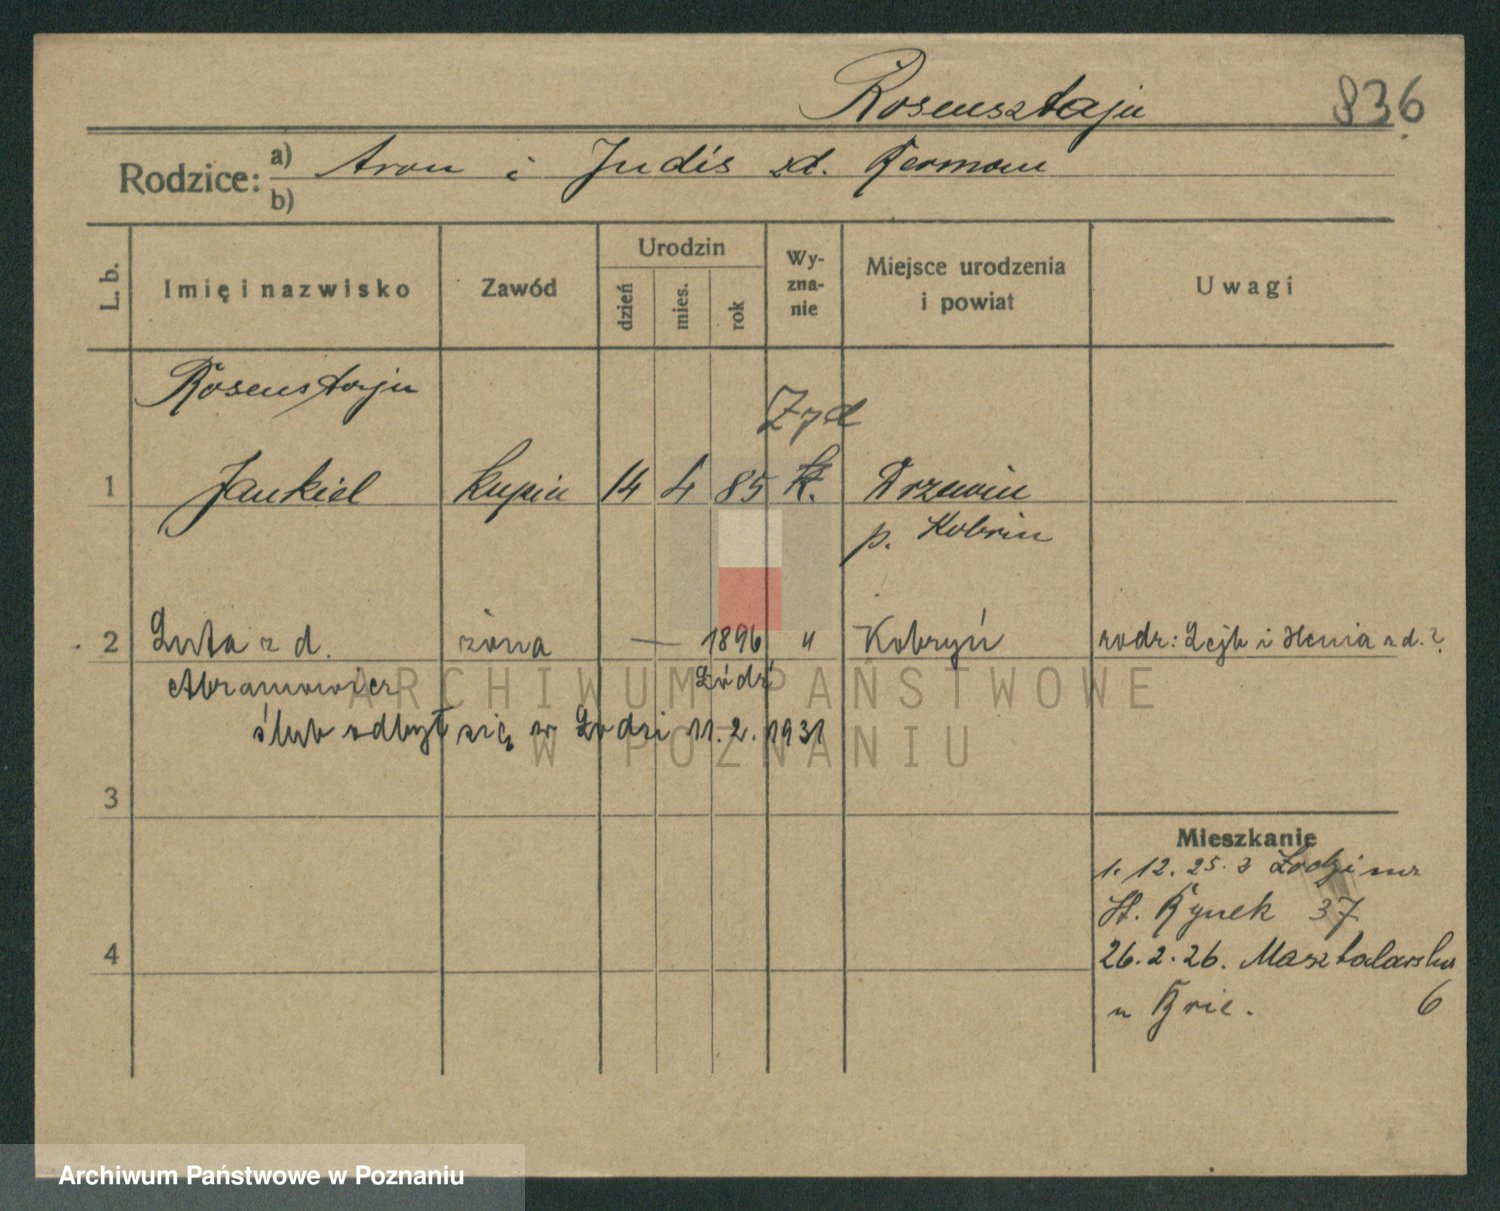 Rosensztajn 836
Rodzice: a) Aron i Judis zd. Fermom
b)
L. b. Imię i nazwisko Zawód Urodzin dzień mies. rok Wyzna-nie Miejsce urodzenia i powiat Uwagi
Rosensztajn
Żyd
1 Jankiel kupiec 14 4 85 Drzewin
p. Kobrin
2 Luta z d. żona — 1896 " Kobryń rodz: Lejb i Henia z d. ?
Abramowicz Łódź
ślub odbył się w Łodzi 11.2.1931
3
Mieszkanie
1. 12. 25. z Łodzi na
St. Rynek 37
4
26. 2. 26. Masztalarska
u Gric. 6
ARCHIWUM PAŃSTWOWE
W POZNANIU
Archiwum Państwowe w Poznaniu